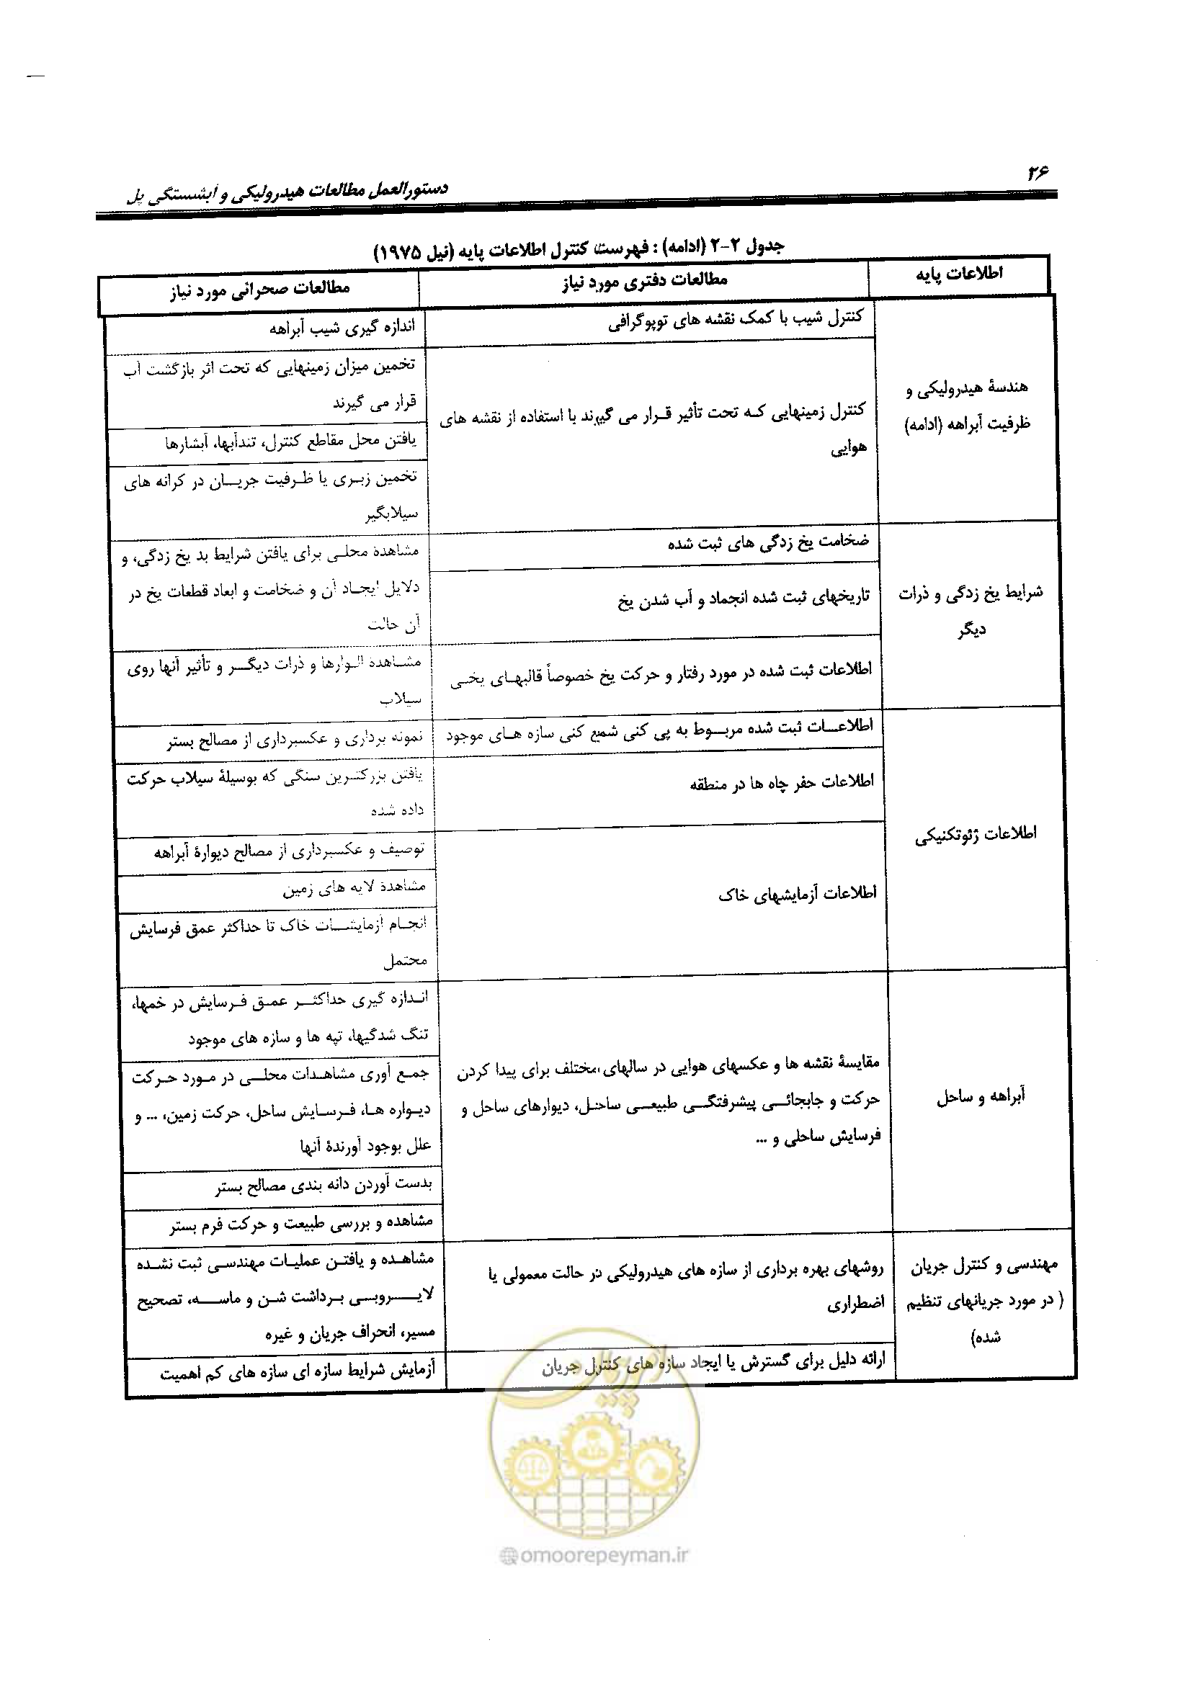 ۲۶
دستورالعمل مطالعات هیدرولیکی و آبشستگی پل
جدول ۲-۲ (ادامه) : فهرست کنترل اطلاعات پایه (نیل ۱۹۷۵)
اطلاعات پایه
مطالعات دفتری مورد نیاز
مطالعات صحرائی مورد نیاز
هندسۀ هیدرولیکی و
ظرفیت آبراهه (ادامه)
کنترل شیب با کمک نقشه های توپوگرافی
کنترل زمینهایی که تحت تأثیر قرار می گیرند با استفاده از نقشه های
هوایی
اندازه گیری شیب آبراهه
تخمین میزان زمینهایی که تحت اثر بازگشت آب
قرار می گیرند
یافتن محل مقاطع کنترل، تندآبها، آبشارها
تخمین زبری یا ظرفیت جریان در کرانه های
سیلابگیر
شرایط یخ زدگی و ذرات
دیگر
ضخامت یخ زدگی های ثبت شده
تاریخهای ثبت شده انجماد و آب شدن یخ
اطلاعات ثبت شده در مورد رفتار و حرکت یخ خصوصاً قالبهای یخی
مشاهدۀ محلی برای یافتن شرایط بد یخ زدگی، و
دلایل ایجاد آن و ضخامت و ابعاد قطعات یخ در
آن حالت
مشاهدۀ الوارها و ذرات دیگر و تأثیر آنها روی
سیلاب
اطلاعات ژئوتکنیکی
اطلاعات ثبت شده مربوط به پی کنی شمع کنی سازه های موجود
اطلاعات حفر چاه ها در منطقه
اطلاعات آزمایشهای خاک
نمونه برداری و عکسبرداری از مصالح بستر
یافتن بزرگترین سنگی که بوسیلۀ سیلاب حرکت
داده شده
توصیف و عکسبرداری از مصالح دیوارۀ آبراهه
مشاهدۀ لایه های زمین
انجام آزمایشات خاک تا حداکثر عمق فرسایش
محتمل
آبراهه و ساحل
مقایسۀ نقشه ها و عکسهای هوایی در سالهای مختلف برای پیدا کردن
حرکت و جابجائی پیشرفتگی طبیعی ساحل، دیوارهای ساحل و
فرسایش ساحلی و ...
اندازه گیری حداکثر عمق فرسایش در خمها،
تنگ شدگیها، تپه ها و سازه های موجود
جمع آوری مشاهدات محلی در مورد حرکت
دیواره ها، فرسایش ساحل، حرکت زمین، ... و
علل بوجود آورندۀ آنها
بدست آوردن دانه بندی مصالح بستر
مشاهده و بررسی طبیعت و حرکت فرم بستر
مهندسی و کنترل جریان
( در مورد جریانهای تنظیم
شده)
روشهای بهره برداری از سازه های هیدرولیکی در حالت معمولی یا
اضطراری
ارائه دلیل برای گسترش یا ایجاد سازه های کنترل جریان
مشاهده و یافتن عملیات مهندسی ثبت نشده
لایروبی برداشت شن و ماسه، تصحیح
مسیر، انحراف جریان و غیره
آزمایش شرایط سازه ای سازه های کم اهمیت
امور پیمان
@omoorepeyman.ir